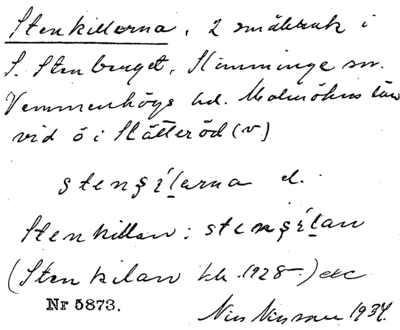 Stenkillorna, 2 småbruk i
S. Stenberget, Slimminge sn.
Vemmenhögs hd. Malmöhus län
vid ö i Slätteröd (v)
stenşíl̥arna el.
Stenkillan: stenşíl̥an
(Stenkilan kk. 1928-) etc
Nr 5873.
1934.